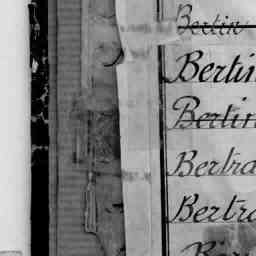 Bertin
Berti
Bertin
Bertra
Bertra
Ber